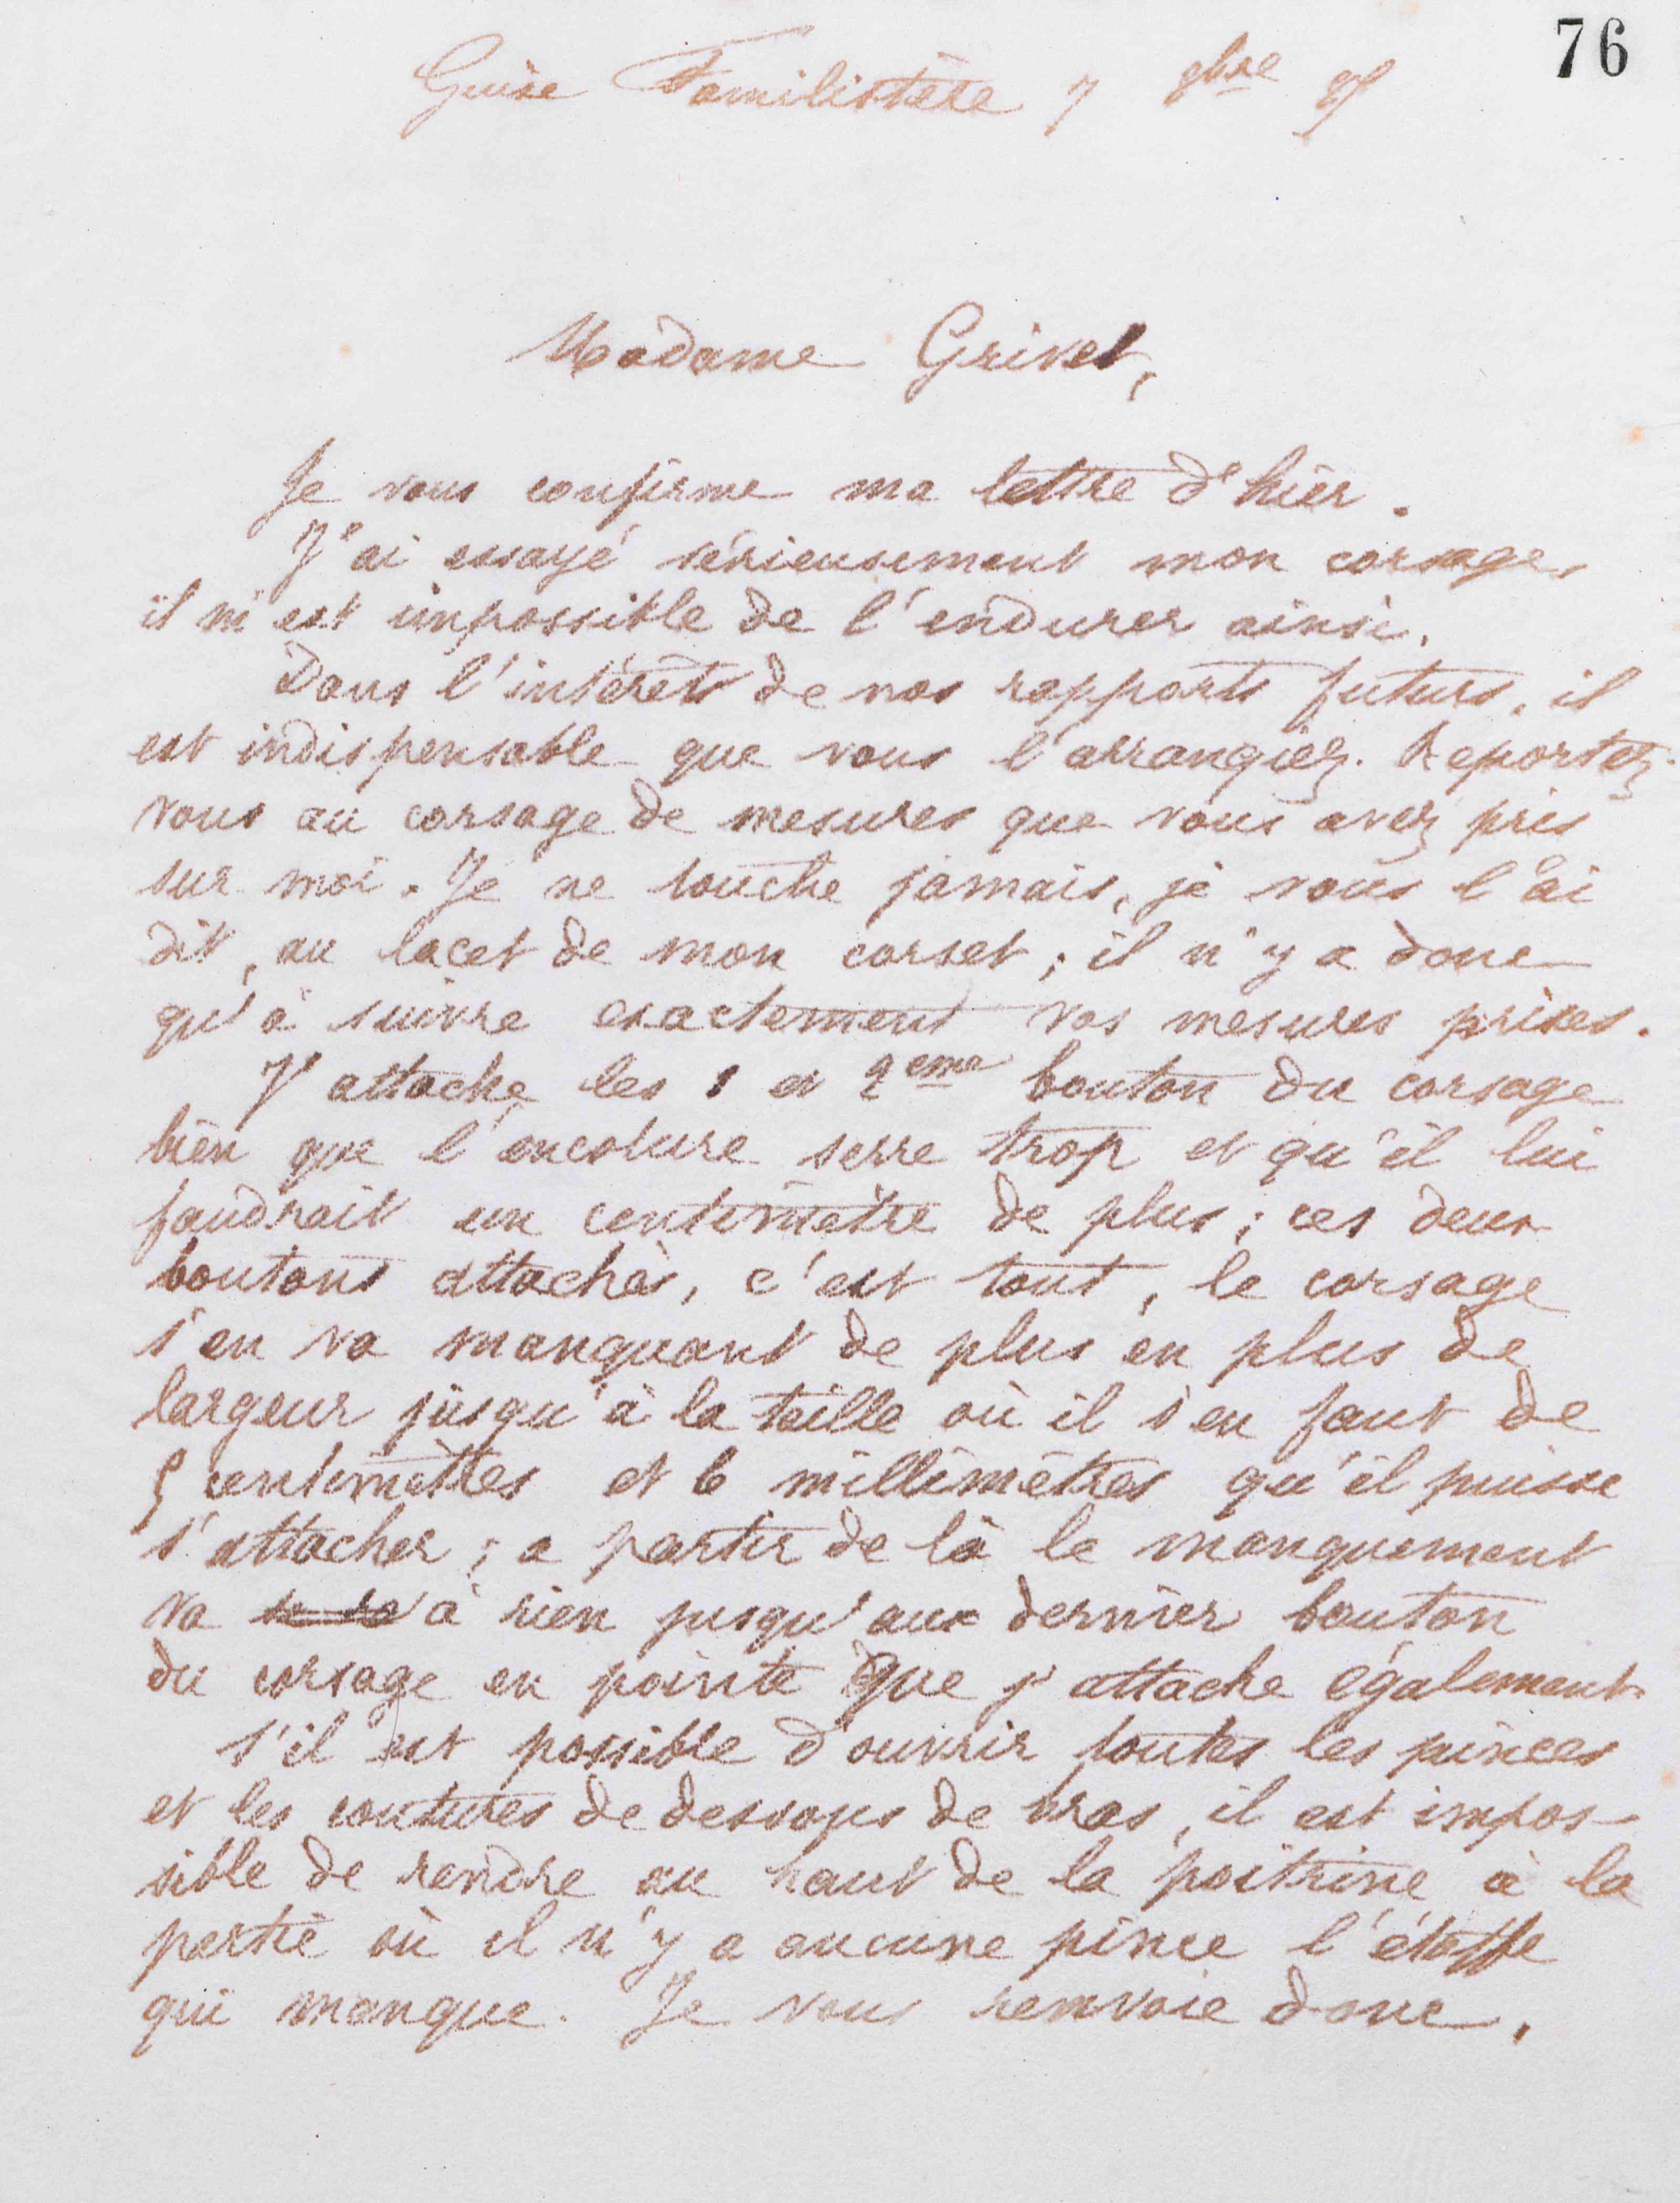 76
Guise Familistère 7 9bre
Madame Grivet,
Je vous confirme ma lettre d'hier.
J'ai essayé sérieusement mon corsage,
il m'est impossible de l'endurer ainsi.
Dans l'intérêt de nos rapports futurs, il
est indispensable que vous l'arrangiez. Reportez-
vous au corsage de mesures que vous avez pris
sur moi. Je ne touche jamais, je vous l'ai
dit, au lacet de mon corset ; il n'y a donc
qu'à suivre exactement vos mesures prises.
J'attache les 1 et 2eme bouton du corsage
bien que l'encolure serre trop et qu'il lui
faudrait un centimètre de plus ; ces deux
boutons attachés, c'est tout, le corsage
s'en va manquant de plus en plus de
largeur jusqu'à la taille où il s'en faut de
5 centimètres et 6 millimètres qu'il puisse
s'attacher ; a partir de là le manquement
va à rien jusqu'aux dernier bouton
du corsage en pointe que j'attache également.
S'il est possible d'ouvrir toutes les pinces
et les coutures de dessous de bras, il est impos-
sible de rendre au haut de la poitrine à la
partie où il n'y a aucune pince l'étoffe
qui manque. Je vous renvoie donc,